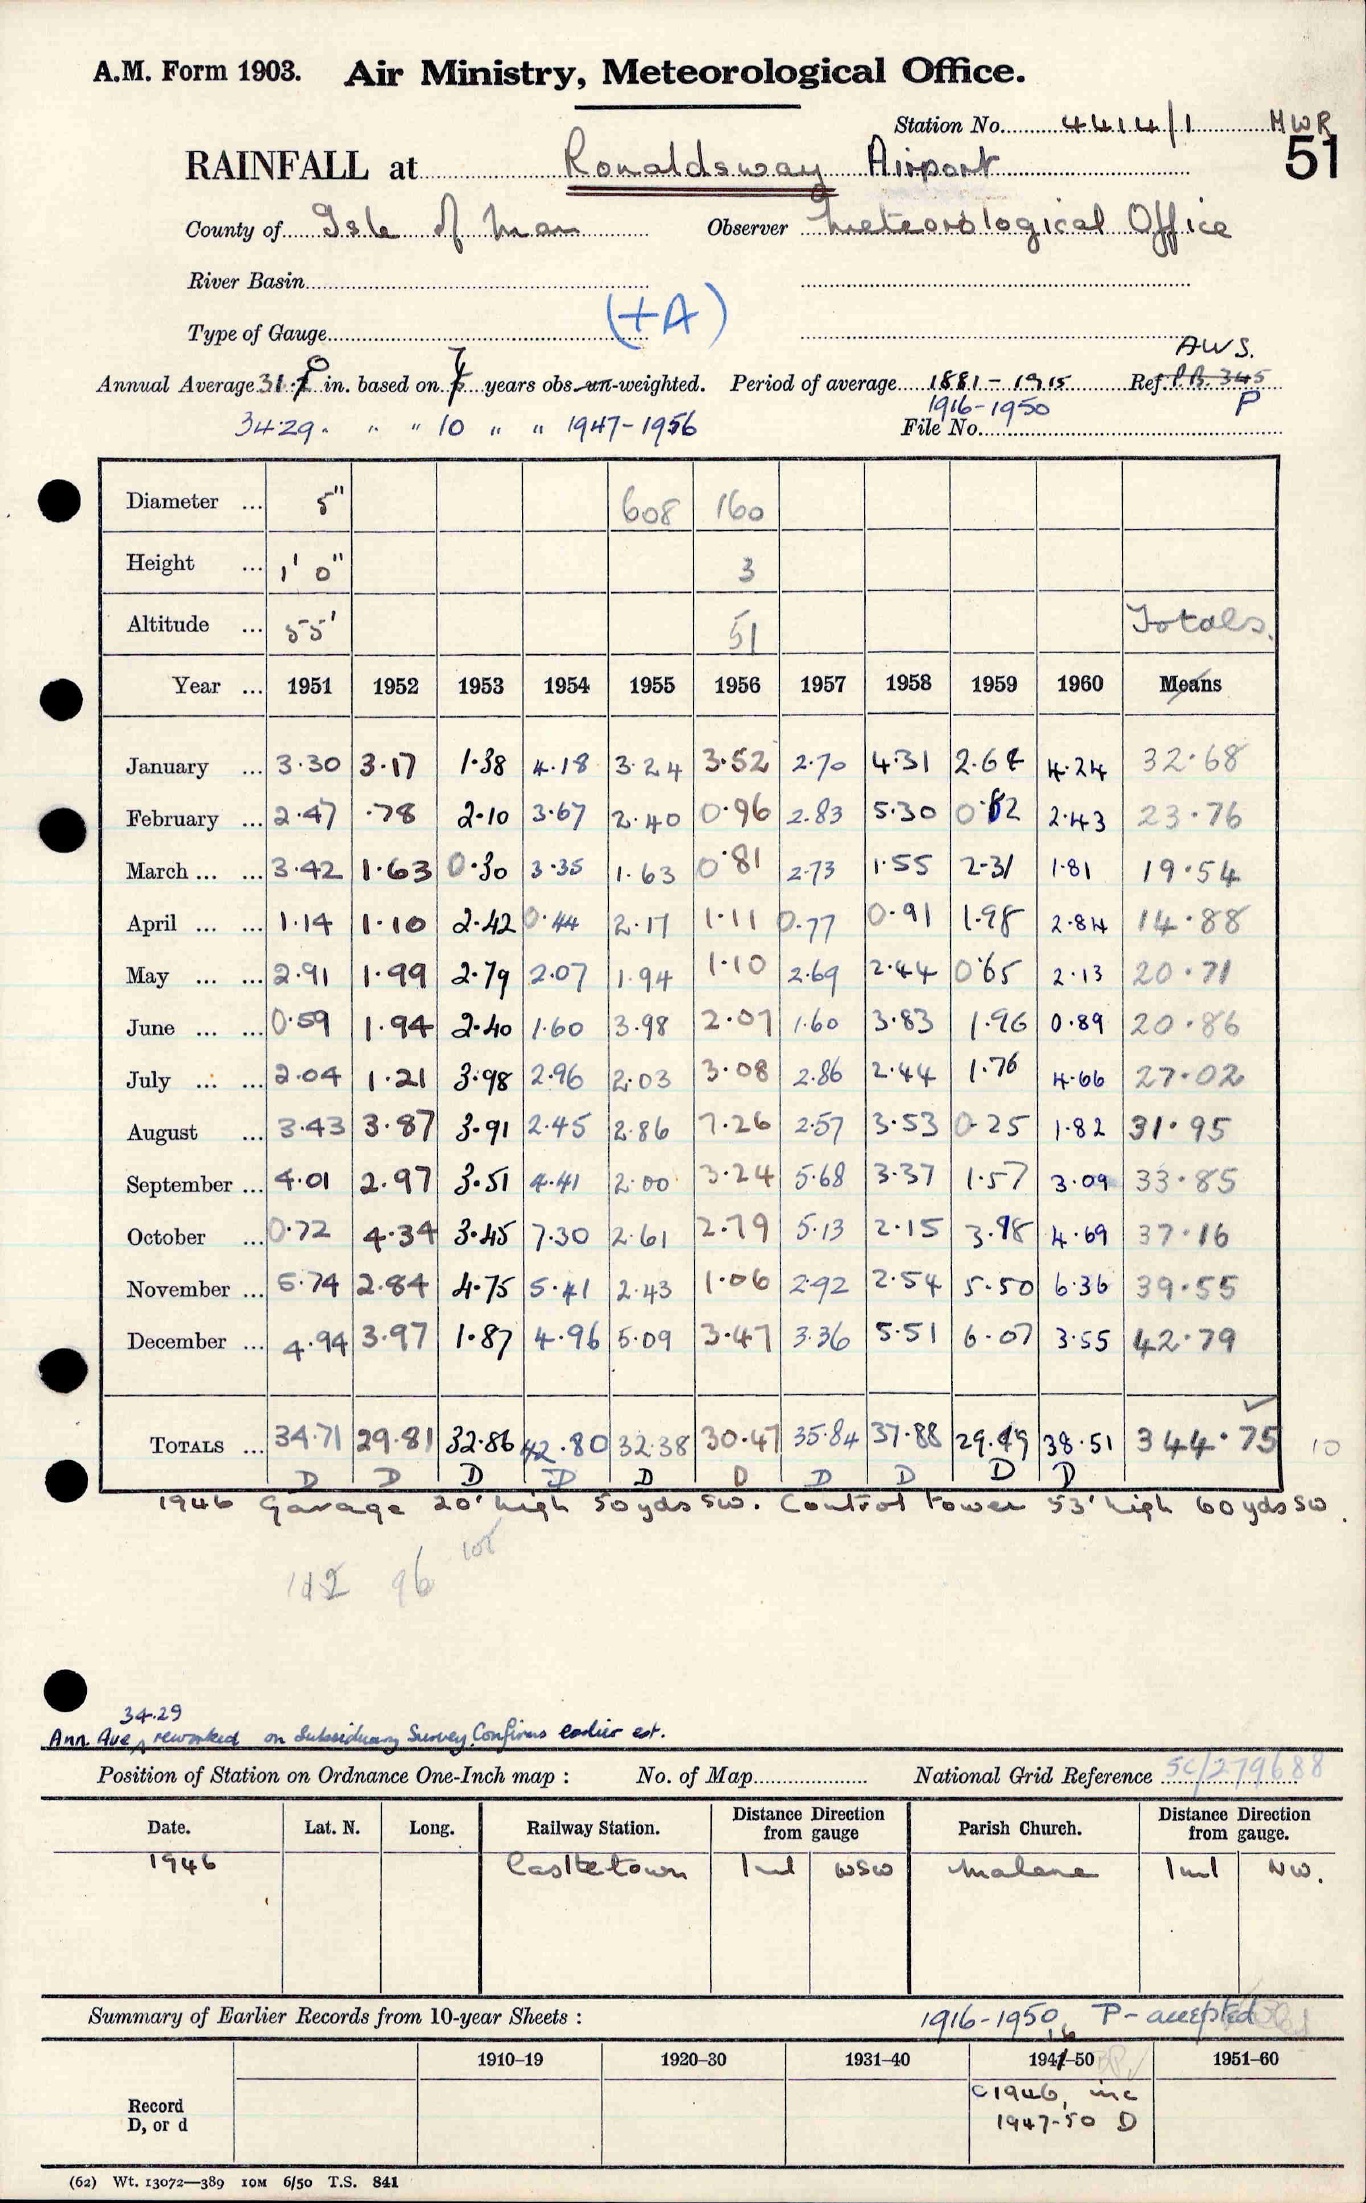 A.M. Form 1903. Air Ministry, Meteorological Office.
Station No. 4414/1 MWR
51
RAINFALL at Ronaldsway Airport
County of Isle of Man Observer Meteorological Office
River Basin
Type of Gauge (+A)
AWS.
Annual Average 31.0 in. based on 7 years obs. un-weighted. Period of average 1881-1915 Ref. P.R. 345
1916-1950 P
34.29 " " " 10 " " 1947-1956 File No.
Diameter ... 5" 608 160
Height ... 1' 0" 3
Altitude ... 55' 51 Totals.
Year ... 1951 1952 1953 1954 1955 1956 1957 1958 1959 1960 Means
January ... 3.30 3.17 1.38 4.18 3.24 3.52 2.70 4.31 2.64 4.24 32.68
February ... 2.47 .78 2.10 3.67 2.40 0.96 2.83 5.30 0.82 2.43 23.76
March ... ... 3.42 1.63 0.30 3.35 1.63 0.81 2.73 1.55 2.31 1.81 19.54
April ... ... 1.14 1.10 2.42 0.44 2.17 1.11 0.77 0.91 1.98 2.84 14.88
May ... ... 2.91 1.99 2.79 2.07 1.94 1.10 2.69 2.44 0.65 2.13 20.71
June ... ... 0.59 1.94 2.40 1.60 3.98 2.07 1.60 3.83 1.96 0.89 20.86
July ... ... 2.04 1.21 3.98 2.96 2.03 3.08 2.86 2.44 1.76 4.66 27.02
August ... 3.43 3.87 3.91 2.45 2.86 7.26 2.57 3.53 0.25 1.82 31.95
September ... 4.01 2.97 3.51 4.41 2.00 3.24 5.68 3.37 1.57 3.09 33.85
October ... 0.72 4.34 3.45 7.30 2.61 2.79 5.13 2.15 3.98 4.69 37.16
November ... 5.74 2.84 4.75 5.41 2.43 1.06 2.92 2.54 5.50 6.36 39.55
December ... 4.94 3.97 1.87 4.96 5.09 3.47 3.36 5.51 6.07 3.55 42.79
TOTALS ... 34.71 29.81 32.86 42.80 32.38 30.47 35.84 37.88 29.49 38.51 344.75 10
D D D D D D D D D D
1946 Garage 20' high 50 yds SW. Control tower 53' high 60 yds SW.
96
34.29
Ann. Ave. reworked on Subsidiary Survey. Confirms earlier est.
Position of Station on Ordnance One-Inch map : No. of Map National Grid Reference SC/279688
Date. Lat. N. Long. Railway Station. Distance Direction from gauge Parish Church. Distance Direction from gauge.
1946 Castletown 1 ml WSW Malone 1 ml NW.
Summary of Earlier Records from 10-year Sheets : 1916-1950 P-accepted
1910–19 1920–30 1931–40 1941–50 1951–60
16
Record D, or d
C1946, inc
1947-50 D
(62) Wt. 13072—389 10M 6/50 T.S. 841